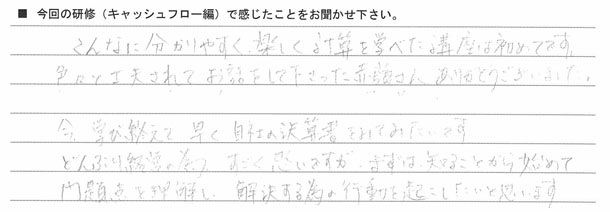 ■ 今回の研修(キャッシュフロー編)で感じたことをお聞かせ下さい。
こんなに分かりやすく、楽しく計算を学べた講座は初めてです。
色々と工夫されてお話をして下さった赤嶺さん ありがとうございました。
今、学び終えて 早く自社の決算書をみてみたいです
どんぶり経営の為、すごく恐いですが、まずは、知ることから始めて
問題点を理解し、解決する為の行動を起こしたいと思います